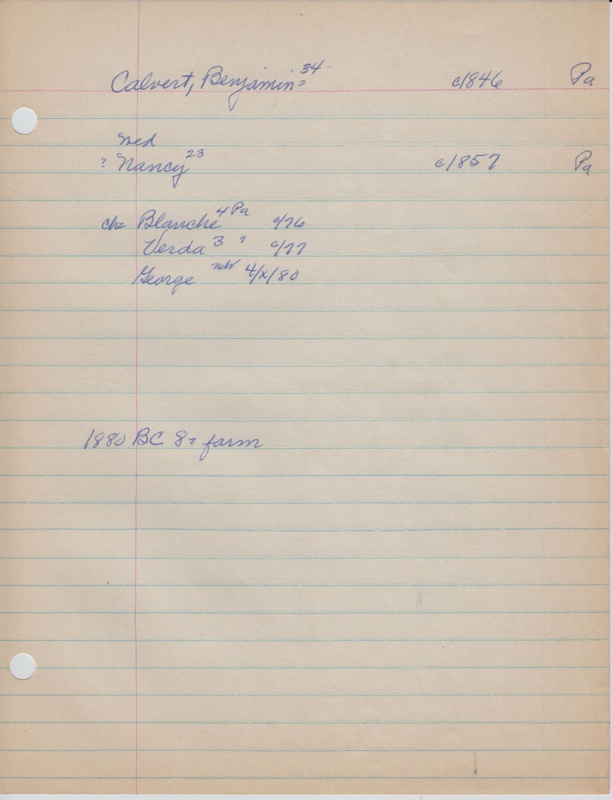 Calvert, Benjamin= 34 c1846 Pa
med
? Nancy 23 c/1857 Pa
ch= Blanche 4 Pa c/76
Verda 3 " c/77
George 4/x/80
1880 BC 8= farm